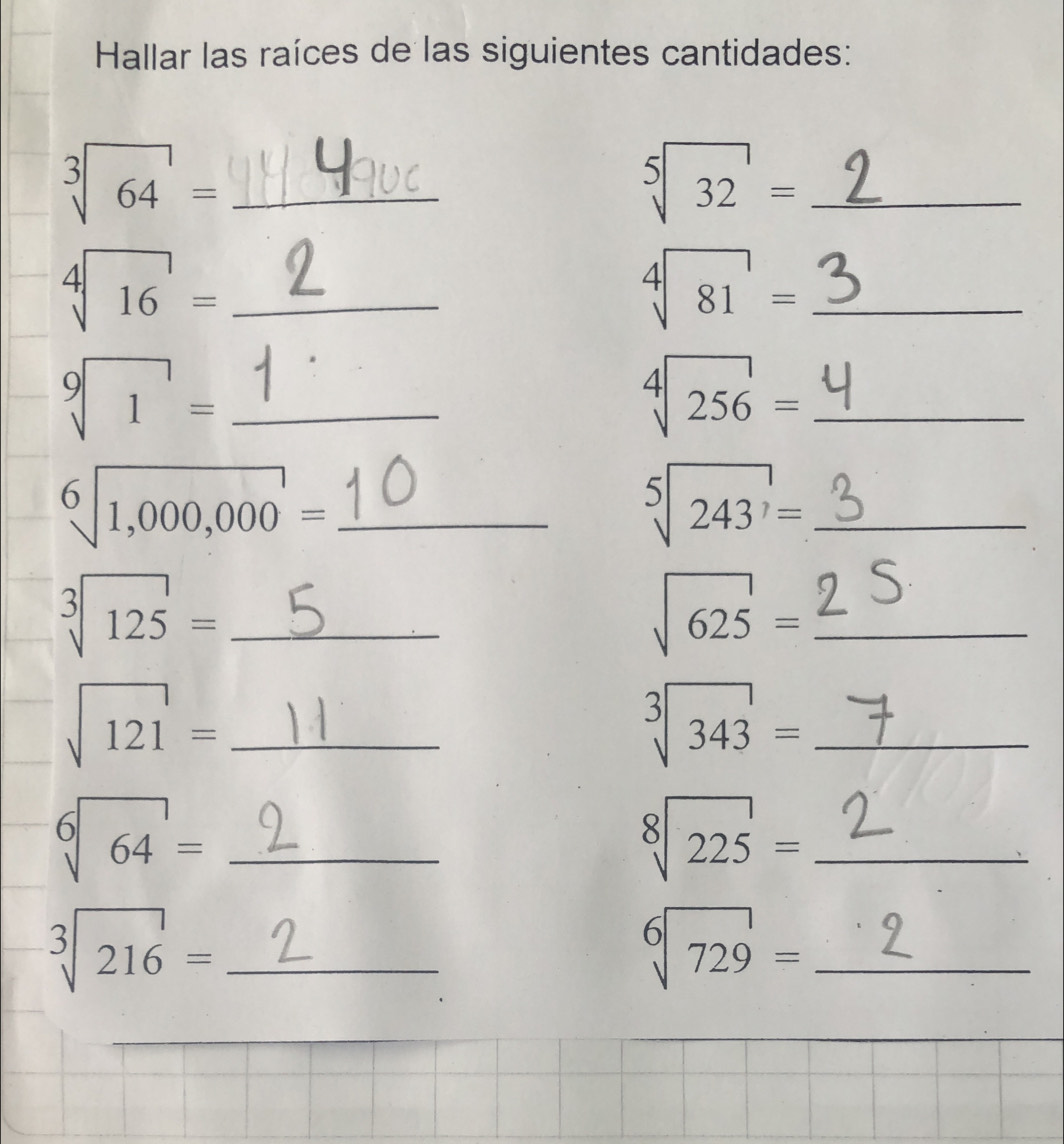 Hallar las raíces de las siguientes cantidades:
∛64 = 4
⁵√32 = 2
⁴√16 = 2
⁴√81 = 3
⁹√1 = 1
⁴√256 = 4
⁶√1,000,000 = 10
⁵√243 = 3
∛125 = 5
√625 = 25
√121 = 11
∛343 = 7
⁶√64 = 2
⁸√225 = 2
∛216 = 2
⁶√729 = 2